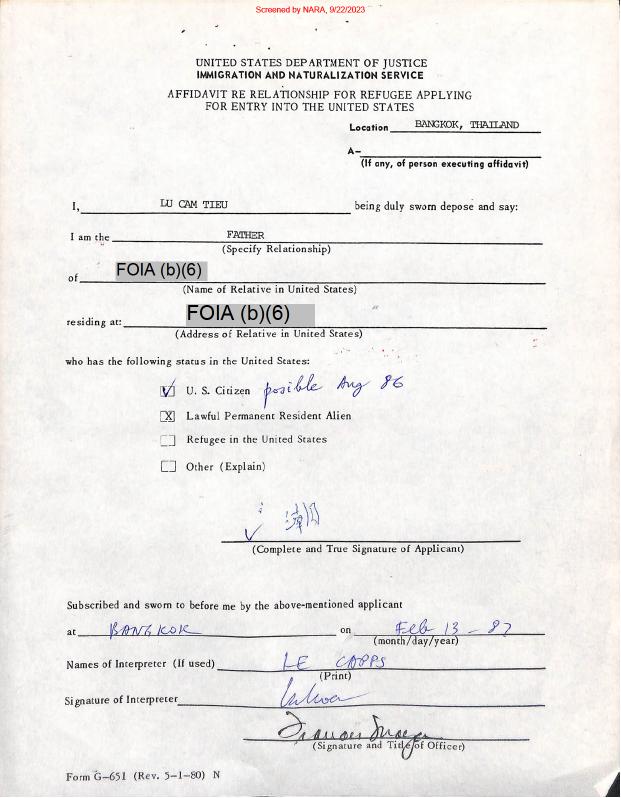 Screened by NARA, 9/22/2023
UNITED STATES DEPARTMENT OF JUSTICE
IMMIGRATION AND NATURALIZATION SERVICE
AFFIDAVIT RE RELATIONSHIP FOR REFUGEE APPLYING
FOR ENTRY INTO THE UNITED STATES
Location BANGKOK, THAILAND
A—
(If any, of person executing affidavit)
I, LU CAM TIEU being duly sworn depose and say:
I am the FATHER
(Specify Relationship)
of FOIA (b)(6)
(Name of Relative in United States)
residing at: FOIA (b)(6)
(Address of Relative in United States)
who has the following status in the United States:
U. S. Citizen posible Aug 86
X Lawful Permanent Resident Alien
Refugee in the United States
Other (Explain)
(Complete and True Signature of Applicant)
Subscribed and sworn to before me by the above-mentioned applicant
at BANGKOK on Feb 13 - 87
(month/day/year)
Names of Interpreter (If used) LE CAPPS
(Print)
Signature of Interpreter
(Signature and Title of Officer)
Form G—651 (Rev. 5—1—80) N